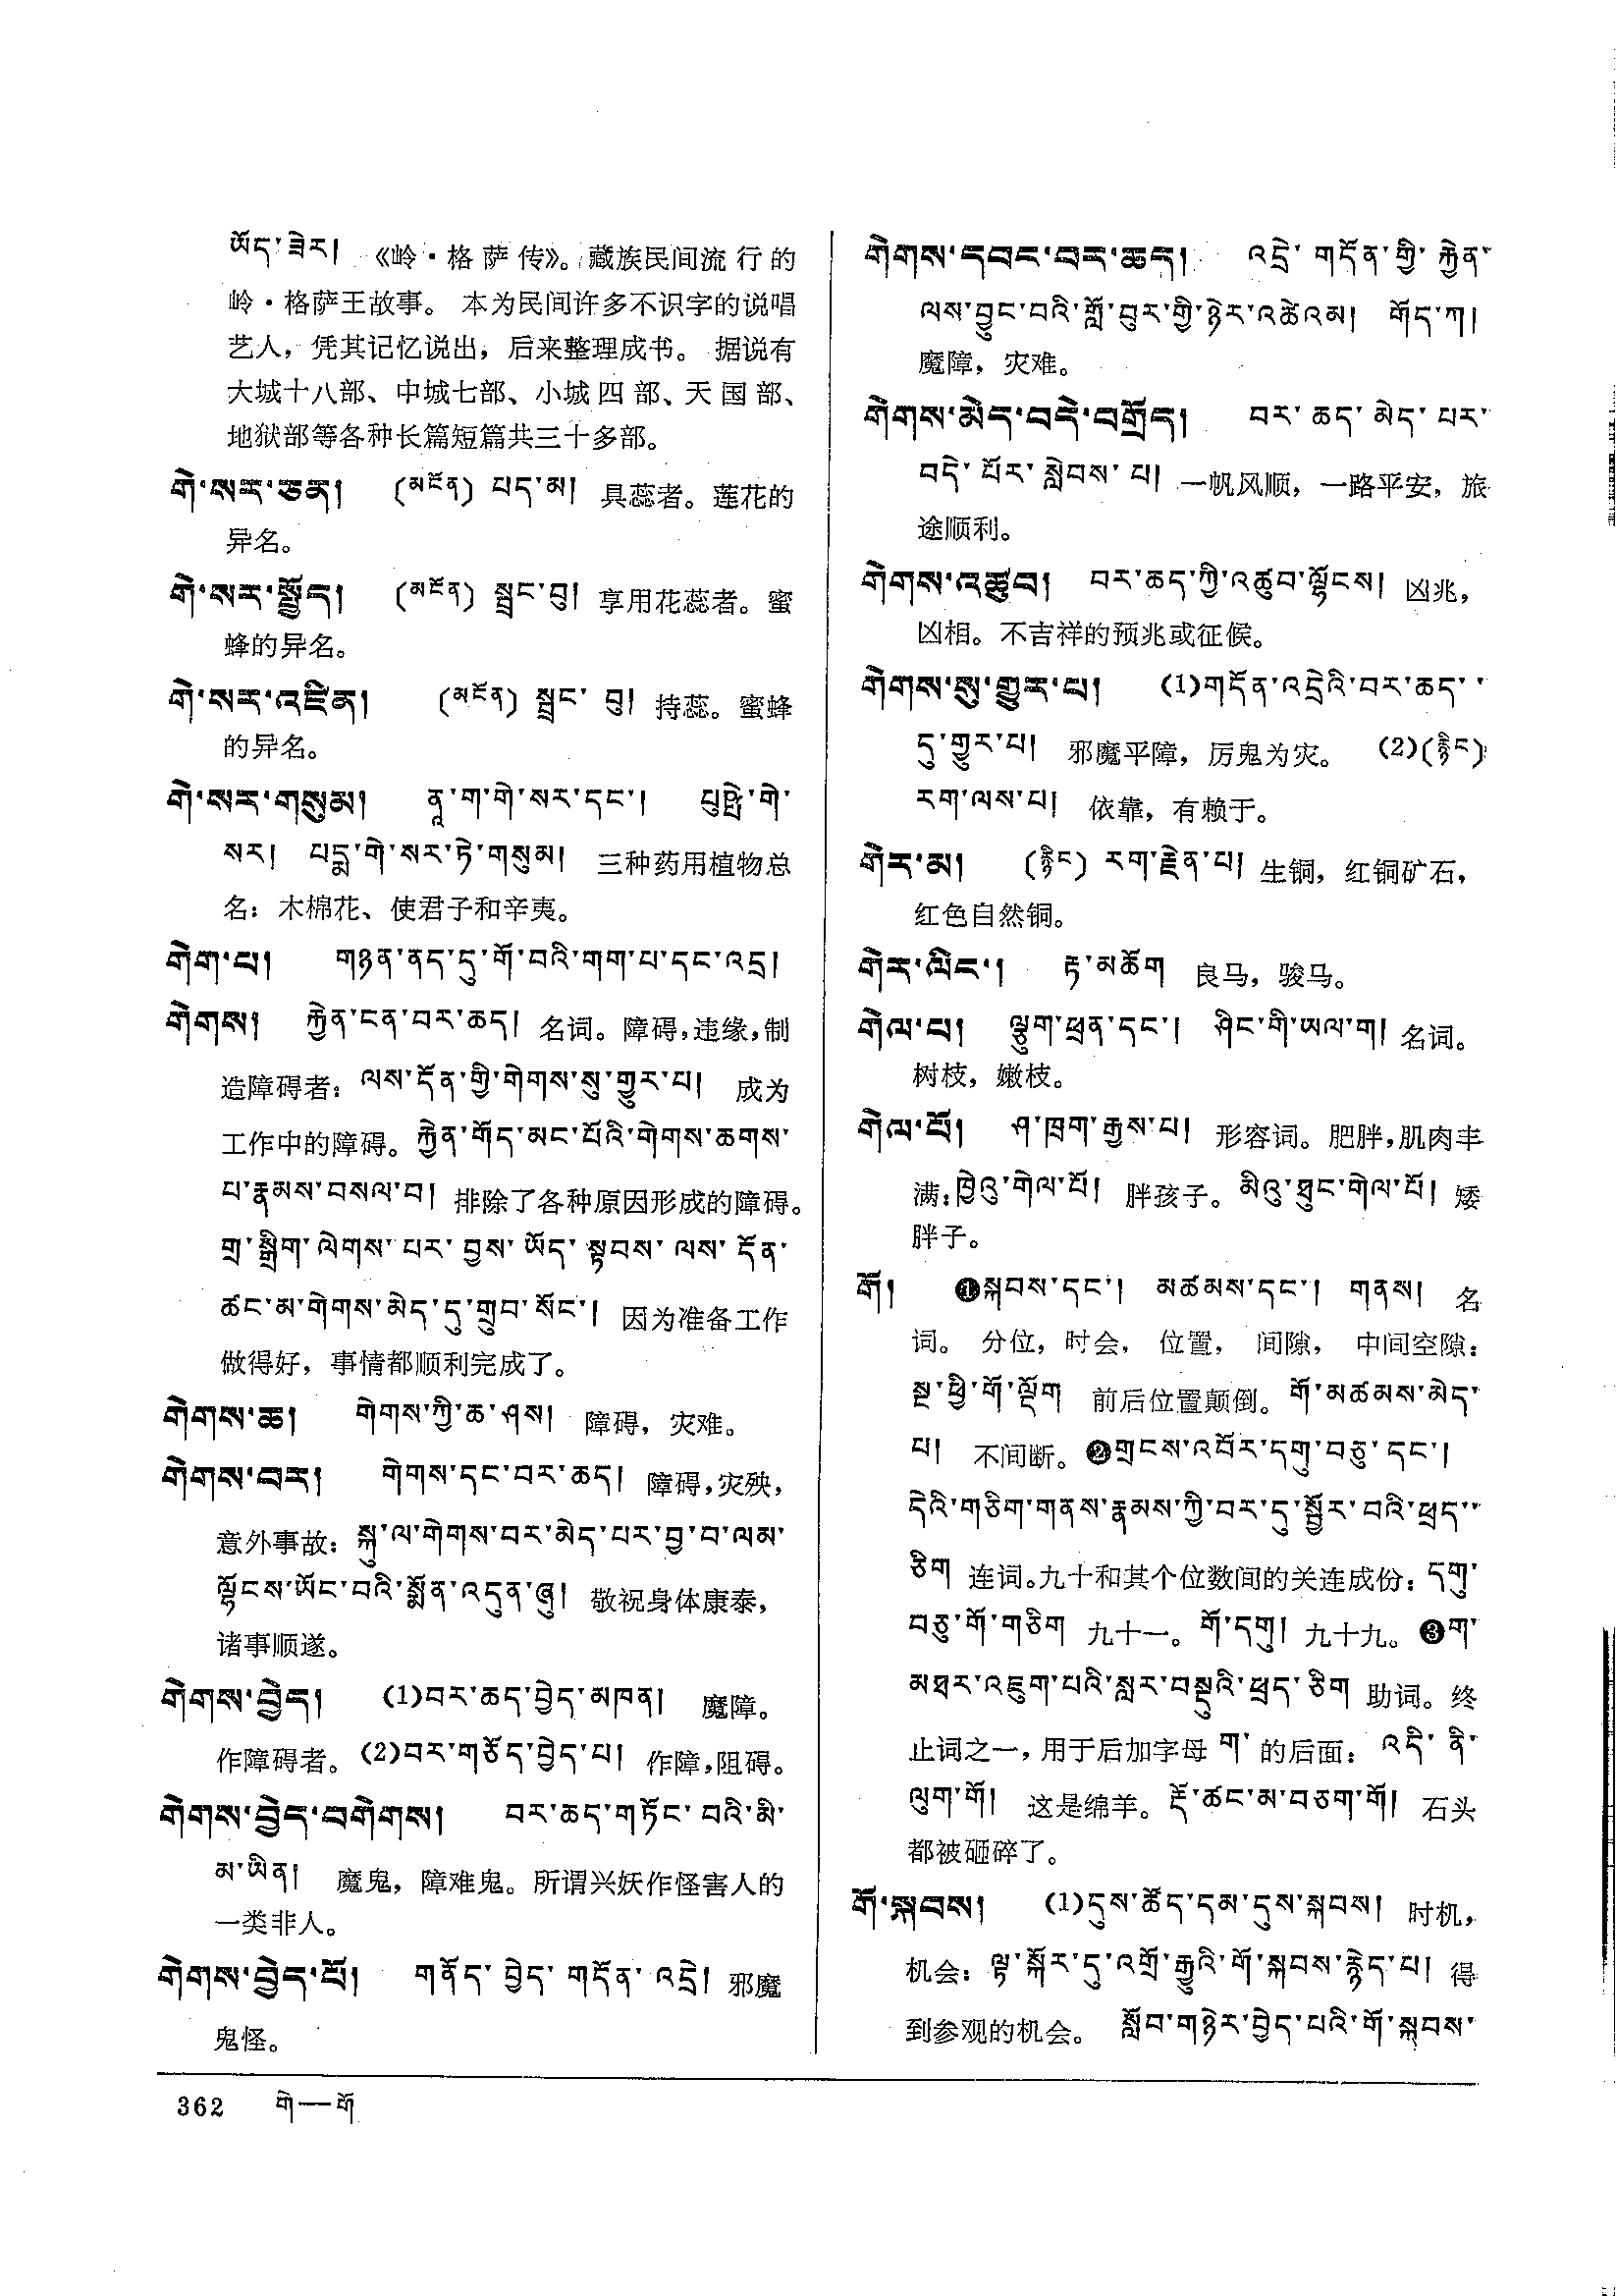 ཡོད་ཟེར། 《岭·格萨传》。藏族民间流行的
岭·格萨王故事。 本为民间许多不识字的说唱
艺人，凭其记忆说出，后来整理成书。 据说有
大城十八部、中城七部、小城四部、天国部、
地狱部等各种长篇短篇共三十多部。
གེ་སར་ཅན། (མངོན) པད་མ། 具蕊者。莲花的
异名。
གེ་སར་སྤྱོད། (མངོན) སྦྲང་བུ། 享用花蕊者。蜜
蜂的异名。
གེ་སར་འཛིན། (མངོན) སྦྲང་བུ། 持蕊。蜜蜂
的异名。
གེ་སར་གསུམ། ནཱ་ག་གེ་སར་དང་། པུཥྤེ་གེ་
སར། པདྨ་གེ་སར་ཏེ་གསུམ། 三种药用植物总
名：木棉花、使君子和辛夷。
གེག་པ། གཉན་ནད་དུ་གོ་བའི་གག་པ་དང་འདྲ།
གེགས། རྐྱེན་ངན་བར་ཆད། 名词。障碍，违缘，制
造障碍者：ལས་དོན་གྱི་གེགས་སུ་གྱུར་པ། 成为
工作中的障碍。རྐྱེན་གོད་མང་པོའི་གེགས་ཆགས་
པ་རྣམས་བསལ་བ། 排除了各种原因形成的障碍。
གྲ་སྒྲིག་ལེགས་པར་བྱས་ཡོད་སྟབས་ལས་དོན་
ཚང་མ་གེགས་མེད་དུ་གྲུབ་སོང་། 因为准备工作
做得好，事情都顺利完成了。
གེགས་ཆ། གེགས་ཀྱི་ཆ་ཤས། 障碍，灾难。
གེགས་བར། གེགས་དང་བར་ཆད། 障碍，灾殃，
意外事故：སྐུ་ལ་གེགས་བར་མེད་པར་བྱ་བ་ལམ་
ལྷོངས་ཡོང་བའི་སྨོན་འདུན་ཞུ། 敬祝身体康泰，
诸事顺遂。
གེགས་བྱེད། (1)བར་ཆད་བྱེད་མཁན། 魔障。
作障碍者。(2)བར་གཅོད་བྱེད་པ། 作障，阻碍。
གེགས་བྱེད་བགེགས། བར་ཆད་གཏོང་བའི་མི་
མ་ཡིན། 魔鬼，障难鬼。所谓兴妖作怪害人的
一类非人。
གེགས་བྱེད་པོ། གནོད་བྱེད་གདོན་འདྲེ། 邪魔
鬼怪。
གེགས་དབང་བར་ཆད། འདྲེ་གདོན་གྱི་རྐྱེན་
ལས་བྱུང་བའི་གློ་བུར་གྱི་ཉེར་འཚེའམ། གོད་ཀ།
魔障，灾难。
གེགས་མེད་བདེ་བགྲོད། བར་ཆད་མེད་པར་
བདེ་པོར་སླེབས་པ། 一帆风顺，一路平安，旅
途顺利。
གེགས་འཚུབ། བར་ཆད་ཀྱི་འཚུབ་ལྷོངས། 凶兆，
凶相。不吉祥的预兆或征候。
གེགས་སུ་གྱུར་པ། (1)གདོན་འདྲེའི་བར་ཆད་
དུ་གྱུར་པ། 邪魔平障，厉鬼为灾。 (2)(རྙིང)
རག་ལས་པ། 依靠，有赖于。
གེར་མ། (རྙིང) རག་རྗེན་པ། 生铜，红铜矿石，
红色自然铜。
གེར་ལིང་། རྟ་མཆོག 良马，骏马。
གེལ་པ། ལྕུག་ཕྲན་དང་། ཤིང་གི་ཡལ་ག། 名词。
树枝，嫩枝。
གེལ་པོ། ཤ་ཁྲག་རྒྱས་པ། 形容词。肥胖，肌肉丰
满：ཁྱེའུ་གེལ་པོ། 胖孩子。མིའུ་ཐུང་གེལ་པོ། 矮
胖子。
གོ། ❶སྐབས་དང་། མཚམས་དང་། གནས། 名
词。 分位，时会， 位置， 间隙， 中间空隙：
སྔ་ཕྱི་གོ་ལྡོག 前后位置颠倒。གོ་མཚམས་མེད་
པ། 不间断。❷གྲངས་འབོར་དགུ་བཅུ་དང་།
དེའི་གཅིག་གནས་རྣམས་ཀྱི་བར་དུ་སྦྱོར་བའི་ཕྲད་
ཅིག 连词。九十和其个位数间的关连成份：དགུ་
བཅུ་གོ་གཅིག 九十一。གོ་དགུ། 九十九。❸ག་
མཐར་འཇུག་པའི་སླར་བསྡུའི་ཕྲད་ཅིག 助词。终
止词之一，用于后加字母 ག་ 的后面：འདི་ནི་
ལུག་གོ། 这是绵羊。རྡོ་ཚང་མ་བཅག་གོ། 石头
都被砸碎了。
གོ་སྐབས། (1)དུས་ཚོད་དམ་དུས་སྐབས། 时机，
机会：ལྟ་སྐོར་དུ་འགྲོ་རྒྱུའི་གོ་སྐབས་རྙེད་པ། 得
到参观的机会。 སློབ་གཉེར་བྱེད་པའི་གོ་སྐབས་
362 གེ—གོ